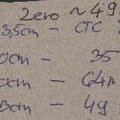 Zero ~ 49
3,5cm - CTC
0cm - 35
0cm - 64m
8cm - 49